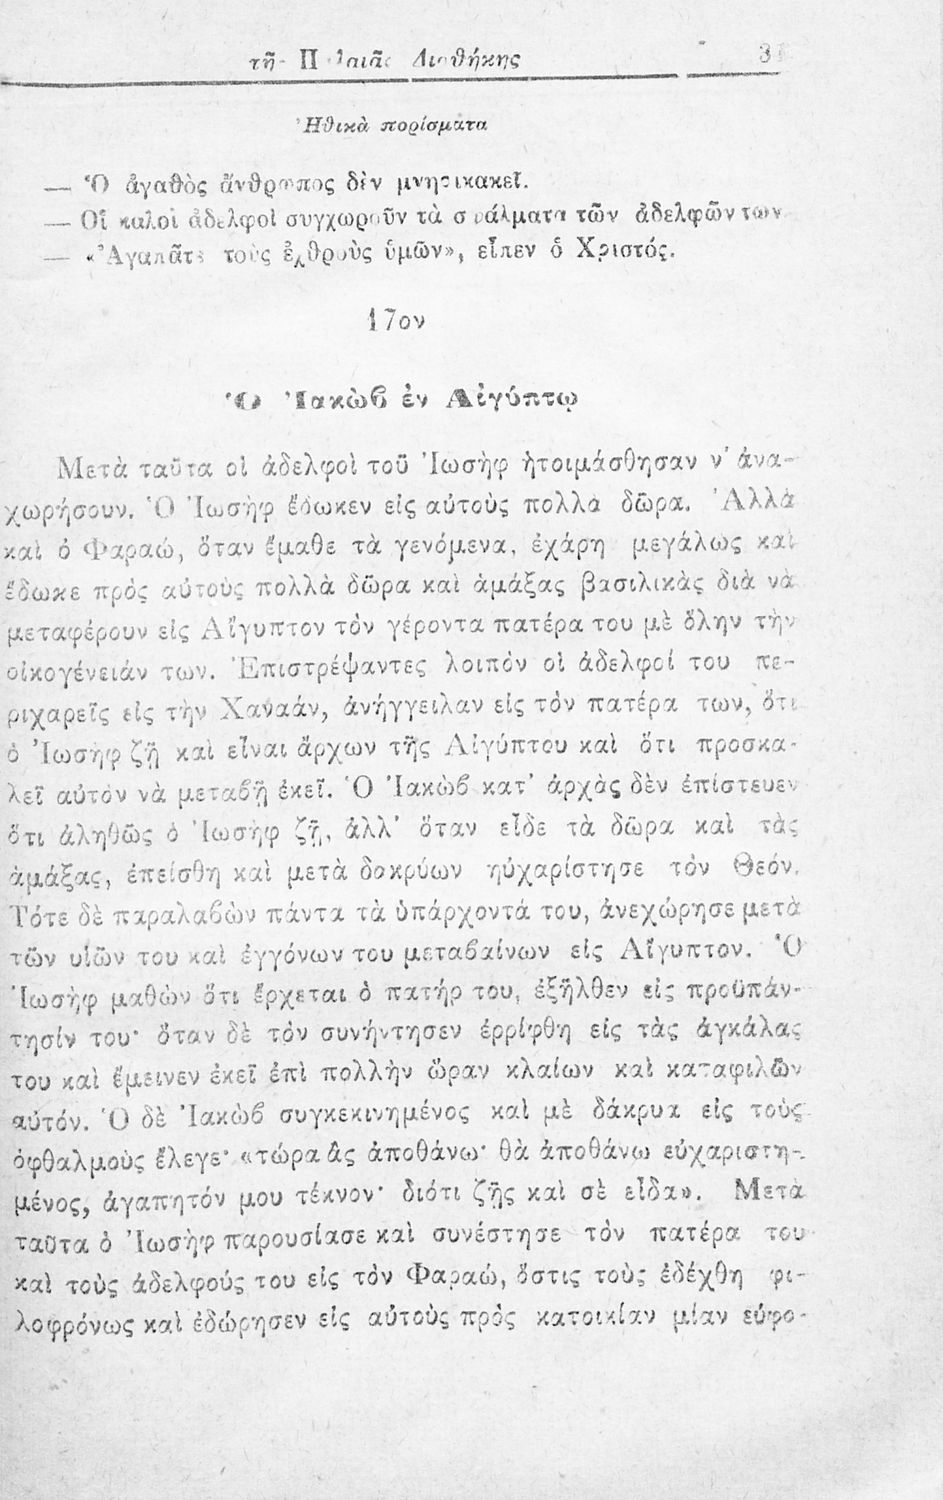 τῆς Παλαιᾶς Διαθήκης
Ἠθικὰ πορίσματα
— Ὁ ἀγαθὸς ἄνθρωπος δὲν μνησικακεῖ.
— Οἱ καλοὶ ἀδελφοὶ συγχωροῦν τὰ σφάλματα τῶν ἀδελφῶν των
— «Ἀγαπᾶτε τοὺς ἐχθροὺς ὑμῶν», εἶπεν ὁ Χριστός.
17ον
Ὁ Ἰακὼβ ἐν Αἰγύπτῳ
Μετὰ ταῦτα οἱ ἀδελφοὶ τοῦ Ἰωσὴφ ἡτοιμάσθησαν ν' ἀνα-
χωρήσουν. Ὁ Ἰωσὴφ ἔδωκεν εἰς αὐτοὺς πολλὰ δῶρα. Ἀλλὰ
καὶ ὁ Φαραώ, ὅταν ἔμαθε τὰ γενόμενα, ἐχάρη μεγάλως καὶ
ἔδωκε πρὸς αὐτοὺς πολλὰ δῶρα καὶ ἁμάξας βασιλικὰς διὰ νὰ
μεταφέρουν εἰς Αἴγυπτον τὸν γέροντα πατέρα του μὲ ὅλην τὴν
οἰκογένειάν των. Ἐπιστρέψαντες λοιπὸν οἱ ἀδελφοί του πε-
ριχαρεῖς εἰς τὴν Χαναάν, ἀνήγγειλαν εἰς τὸν πατέρα των, ὅτι
ὁ Ἰωσὴφ ζῇ καὶ εἶναι ἄρχων τῆς Αἰγύπτου καὶ ὅτι προσκα-
λεῖ αὐτὸν νὰ μεταβῇ ἐκεῖ. Ὁ Ἰακὼβ κατ' ἀρχὰς δὲν ἐπίστευεν
ὅτι ἀληθῶς ὁ Ἰωσὴφ ζῇ, ἀλλ' ὅταν εἶδε τὰ δῶρα καὶ τὰς
ἁμάξας, ἐπείσθη καὶ μετὰ δακρύων ηὐχαρίστησε τὸν Θεόν.
Τότε δὲ παραλαβὼν πάντα τὰ ὑπάρχοντά του, ἀνεχώρησε μετὰ
τῶν υἱῶν του καὶ ἐγγόνων του μεταβαίνων εἰς Αἴγυπτον. Ὁ
Ἰωσὴφ μαθὼν ὅτι ἔρχεται ὁ πατήρ του, ἐξῆλθεν εἰς προϋπάν-
τησίν του· ὅταν δὲ τὸν συνήντησεν ἐρρίφθη εἰς τὰς ἀγκάλας
του καὶ ἔμεινεν ἐκεῖ ἐπὶ πολλὴν ὥραν κλαίων καὶ καταφιλῶν
αὐτόν. Ὁ δὲ Ἰακὼβ συγκεκινημένος καὶ μὲ δάκρυα εἰς τοὺς
ὀφθαλμοὺς ἔλεγε· «τώρα ἂς ἀποθάνω· θὰ ἀποθάνω εὐχαριστη-
μένος, ἀγαπητόν μου τέκνον· διότι ζῇς καὶ σὲ εἶδα». Μετὰ
ταῦτα ὁ Ἰωσὴφ παρουσίασε καὶ συνέστησε τὸν πατέρα του
καὶ τοὺς ἀδελφούς του εἰς τὸν Φαραώ, ὅστις τοὺς ἐδέχθη φι-
λοφρόνως καὶ ἐδώρησεν εἰς αὐτοὺς πρὸς κατοικίαν μίαν εὔφο-